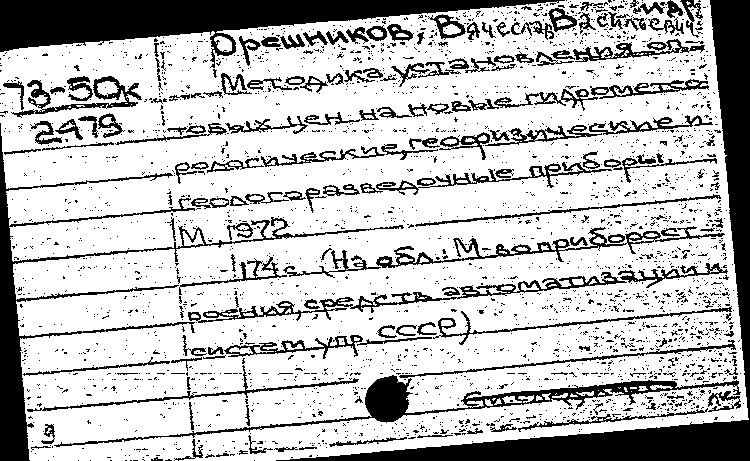 Орешников, Вячеслав Васильевич и др.
73-50к
2479
Методика установления оп-
товых цен на новые гидрометео
рологические, геофизические и
геологоразведочные приборы.
М., 1972
174 с. (На обл.: М-во приборост
роения, средств автоматизации и
систем упр. СССР)
См. след. карт.
9